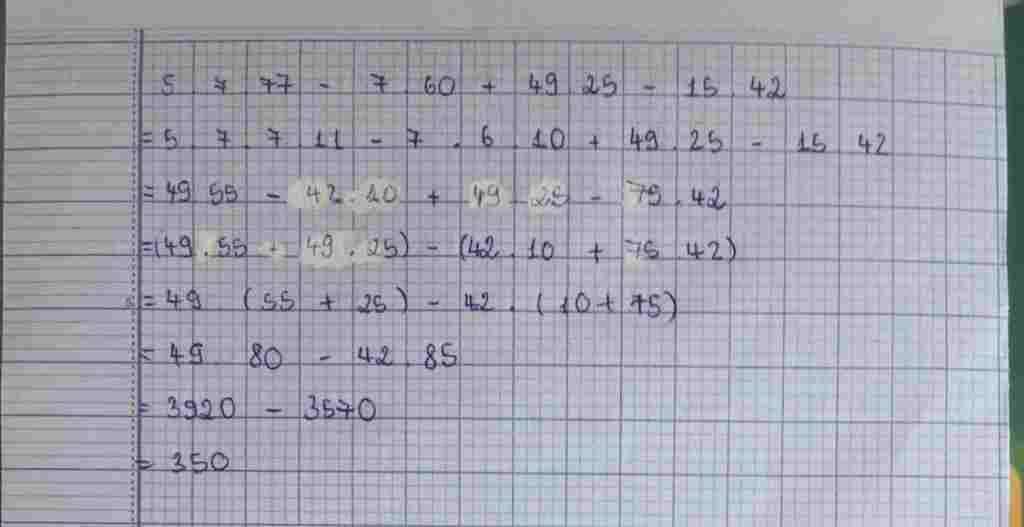 5 7 77 - 7 60 + 49 25 - 15 42
= 5 7 7 11 - 7 . 6 . 10 + 49 . 25 - 15 42
= 49 55 - 42 . 10 + 49 25 - 75 . 42
= (49 . 55 + 49 . 25) - (42 . 10 + 75 42)
= 49 (55 + 25) - 42 . (10 + 75)
= 49 80 - 42 . 85
= 3920 - 3570
= 350